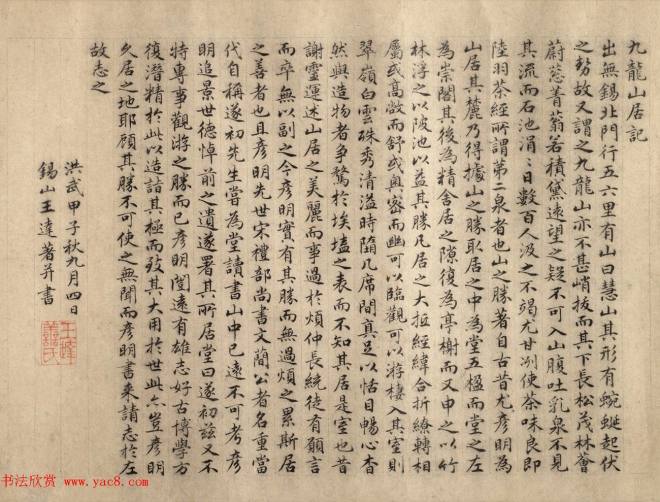 九龍山居記
出無錫北門行五六里有山曰慧山其形有蜿蜒起伏
之勢故又謂之九龍山亦不甚峭拔而其下長松茂林薈
蔚葱菁蓊若積黛遠望之疑不可入山腹吐乳泉不見
其流而石池涓涓日數百人汲之不竭尤甘冽使茶味良即
陸羽茶經所謂第二泉者也山之勝著自古昔尤彦明為
山居其麓乃得據山之勝取居之中為堂五楹而堂之左
為崇閣其後為精舍居之隙復為亭榭而又申之以竹
林浮之以陂池以益其勝凡居之大拒經緯合折繚轉相
屬或高敞而舒或奥密而幽可以臨觀可以游棲入其室則
翠嶺白雲殊秀清溢時隨几席間真足以怡目暢心杳
然與造物者争騖於埃壒之表而不知其居是室也昔
謝靈運述山居之美麗而事過於煩仲長統徒有願言
而卒無以副之今彦明實有其勝而無過煩之累斯居
之善者也且彦明先世宋禮部尚書文簡公者名重當
代自稱遂初先生嘗為堂讀書山中已遠不可考彦
明追景世德悼前之遺遂署其所居堂曰遂初兹又不
特專事觀游之勝而已彦明閎遠有雄志好古博學方
復潛精於此以造詣其極而致其大用於世此六豈彦明
久居之地耶顧其勝不可使之無聞而彦明書来請志於左
故志之
洪武甲子秋九月四日
錫山王達著并書
书法欣赏
www.yac8.com